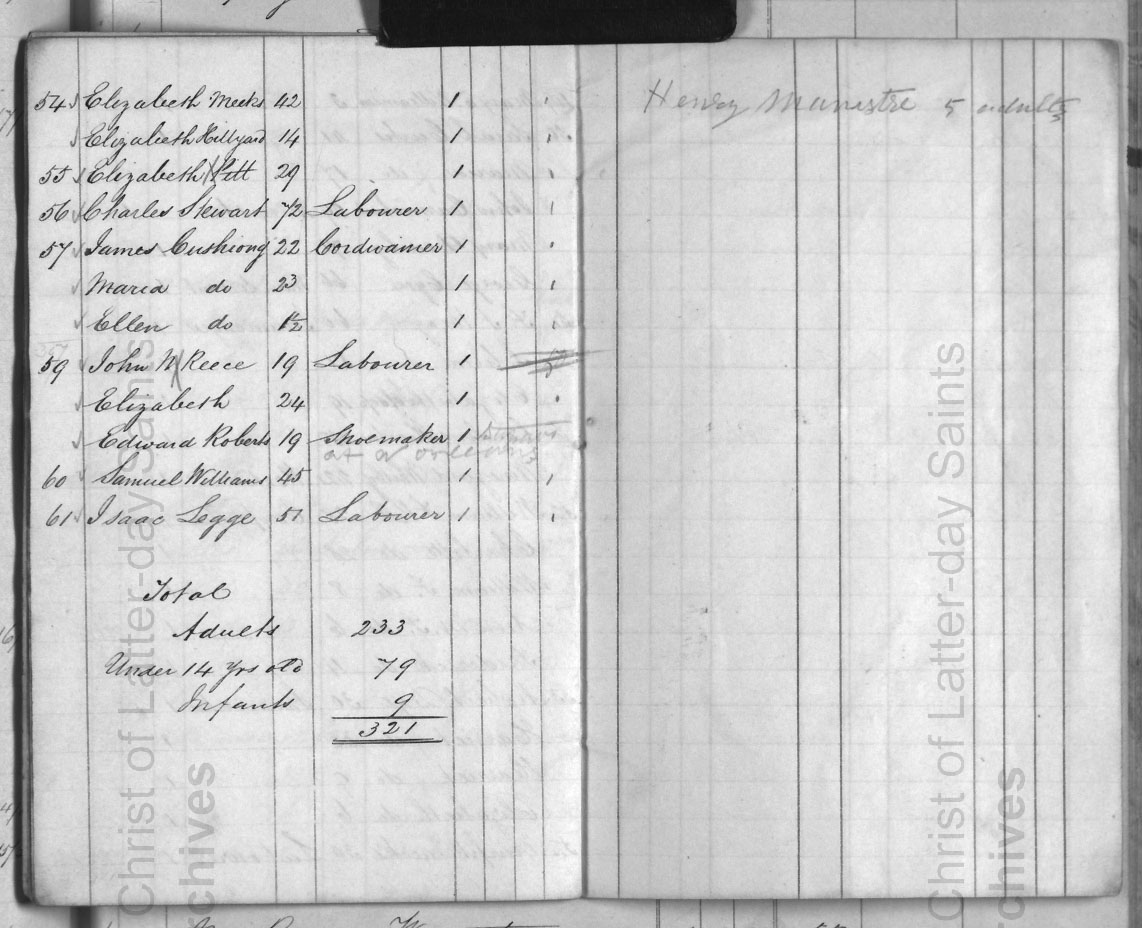 54 Elizabeth Meeks 42 1 1
Elizabeth Hillyard 14 1 1
55 Elizabeth Pitt 29 1 1
56 Charles Stewart 72 Labourer 1 1
57 James Cushiong 22 Cordwainer 1 1
Maria do 23 1 1
Ellen do 1½ 1
59 John W Reece 19 Labourer 1
Elizabeth 24 1 1
Edward Roberts 19 Shoemaker 1
at N Orleans
60 Samuel Williams 45 1 1
61 Isaac Legge 51 Labourer 1 1
Total
Adults 233
Under 14 Yrs old 79
Infants 9
321
Henry Manistre 5 adults
Christ of Latter-day Saints
chives
Christ of Latter-day Saints
chives